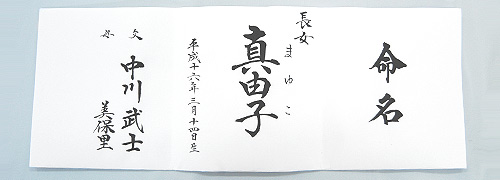 命名
長女
まゆこ
真由子
平成十六年三月十四日生
父 中川武士
母 美保里